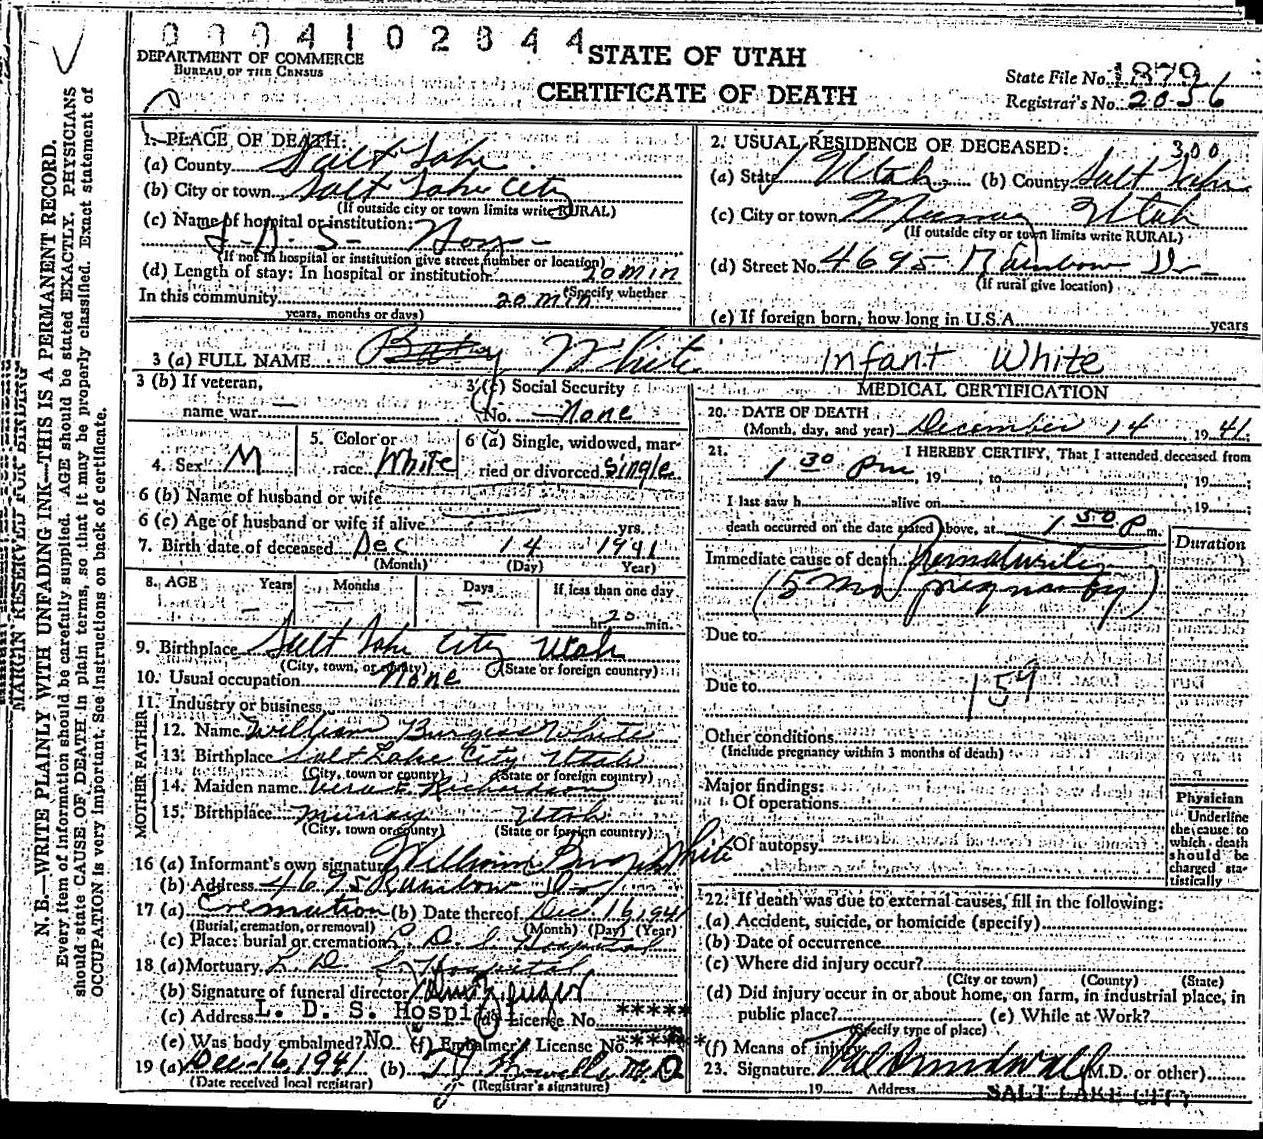 0004102844
DEPARTMENT OF COMMERCE
BUREAU OF THE CENSUS
STATE OF UTAH
CERTIFICATE OF DEATH
State File No. 1879
Registrar's No. 2056
MARGIN RESERVED FOR BINDING
N. B.—WRITE PLAINLY WITH UNFADING INK—THIS IS A PERMANENT RECORD.
Every item of information should be carefully supplied. AGE should be stated EXACTLY. PHYSICIANS
should state CAUSE OF DEATH in plain terms, so that it may be properly classified. Exact statement of
OCCUPATION is very important. See instructions on back of certificate.
1. PLACE OF DEATH:
(a) County Salt Lake
(b) City or town Salt Lake City
(If outside city or town limits write RURAL)
(c) Name of hospital or institution:
L. D. S. Hos-
(If not in hospital or institution give street number or location)
(d) Length of stay: In hospital or institution 20 min
(Specify whether
In this community 20 min
years, months or days)
2. USUAL RESIDENCE OF DECEASED: 300
(a) State Utah (b) County Salt Lake
(c) City or town Murray Utah
(If outside city or town limits write RURAL)
(d) Street No. 4695 Rainbow Dr-
(If rural give location)
(e) If foreign born, how long in U.S.A. years
3 (a) FULL NAME Baby White Infant White
3 (b) If veteran, name war —
3 (c) Social Security No. None
4. Sex M
5. Color or race White
6 (a) Single, widowed, married or divorced Single
6 (b) Name of husband or wife
6 (c) Age of husband or wife if alive yrs.
7. Birth date of deceased Dec 14 1941
(Month) (Day) (Year)
8. AGE Years Months Days If less than one day
— — — hr. 20 min.
9. Birthplace Salt Lake City Utah
(City, town, or county) (State or foreign country)
10. Usual occupation None
11. Industry or business
FATHER
12. Name William Burgess White
13. Birthplace Salt Lake City Utah
(City, town or county) (State or foreign country)
MOTHER
14. Maiden name Vera E Richardson
15. Birthplace Murray Utah
(City, town or county) (State or foreign country)
16 (a) Informant's own signature William Burgess White
(b) Address 4675 Rainbow Dr
17 (a) Cremation (b) Date thereof Dec 16 1941
(Burial, cremation, or removal) (Month) (Day) (Year)
(c) Place: burial or cremation L. D. S. Hospital
18 (a) Mortuary L. D. S. Hospital
(b) Signature of funeral director
(c) Address L. D. S. Hospital (d) License No. *****
(e) Was body embalmed? No (f) Embalmer's License No. *****
19 (a) Dec-16, 1941 (b) T J Howells M.D
(Date received local registrar) (Registrar's signature)
MEDICAL CERTIFICATION
20. DATE OF DEATH
(Month, day, and year) December 14 1941
21. I HEREBY CERTIFY, That I attended deceased from
1 30 Pm, 19 , to , 19 ;
I last saw h alive on , 19 ;
death occurred on the date stated above, at 1 50 P m.
Duration
Immediate cause of death Prematurity
(5 mo pregnancy)
Due to
Due to
159
Other conditions
(Include pregnancy within 3 months of death)
Major findings:
Of operations
Of autopsy
Physician
Underline
the cause to
which death
should be
charged sta-
tistically
22. If death was due to external causes, fill in the following:
(a) Accident, suicide, or homicide (specify)
(b) Date of occurrence
(c) Where did injury occur?
(City or town) (County) (State)
(d) Did injury occur in or about home, on farm, in industrial place, in
public place? (e) While at Work?
(Specify type of place)
(f) Means of injury
23. Signature (M.D. or other)
19 Address SALT LAKE CITY